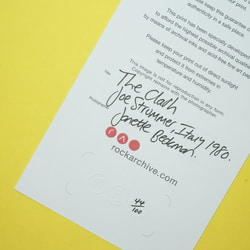 keep this guarantee
your print
authenticity in a safe place.
This print has been specially developed
to afford the highest possible archival quality
by means of archival inks and acid-free fine art paper
Please keep your print out of direct sunlight
and protect it from extremes in
temperature and humidity.
This image is not for reproduction in any form.
Copyright remains with the photographer.
Title
The Clash
Joe Strummer, Italy 1980.
Photographer
Janette Beckman.
rockarchive.com
44
100